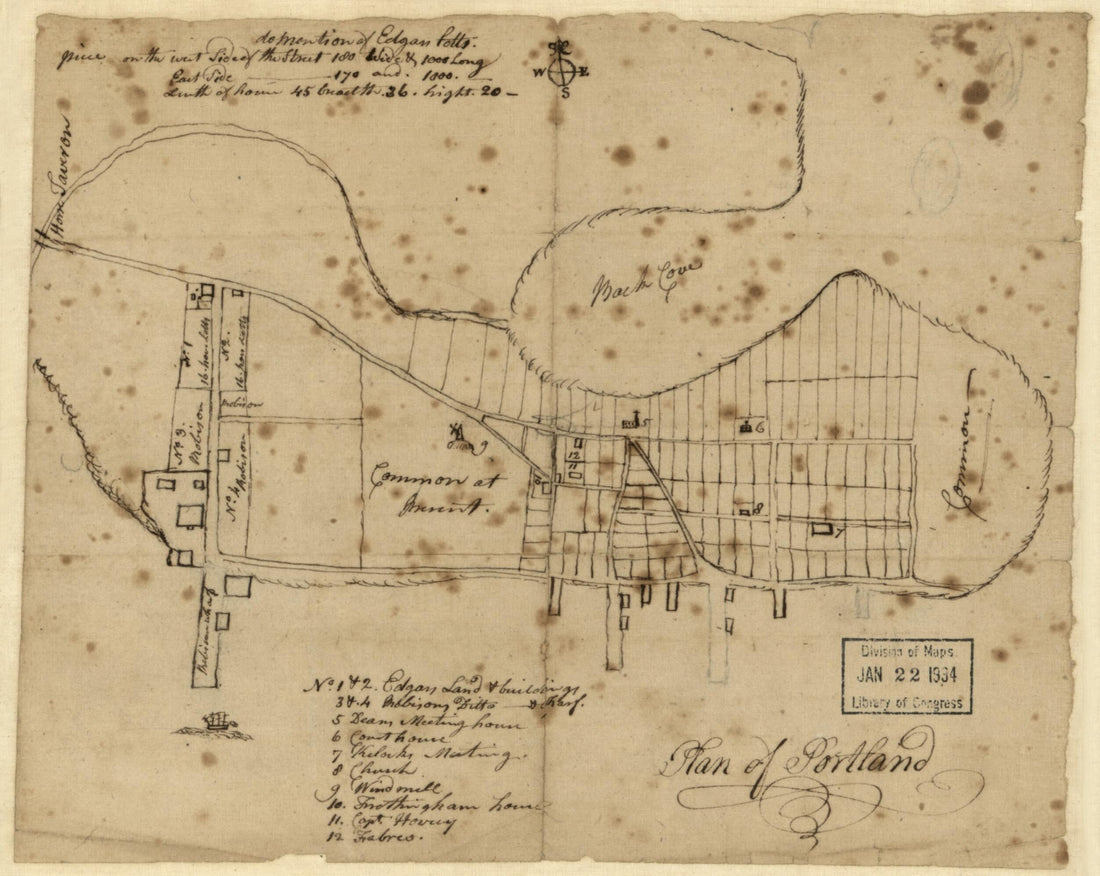 domention of Edgar lotts.
piece on the west Side of the Street 180 Wide & 1000 Long
East Side 170 and. 1000.
Lenth of house 45 breadth. 36. hight. 20 —
N
W E
S
Hors Taveron
Back Cove
No 1
16 hous lotts
No 2.
16 hous lotts
Robison
No 3.
Robison
No 4
Robison
9
Common at
Present.
5
6
12
11
10
8
7
Common
Robison wharf
No. 1 & 2. Edgars Land & buildings
3 & 4 Robisons Ditto & Warf.
5 Deans Meeting house
6 Court house
7 Kelocks Meeting.
8 Church
9 Windmill
10. Frothingham house
11. Capt. Hovey
12 Fabres.
Division of Maps
JAN 22 1934
Library of Congress
Plan of Portland